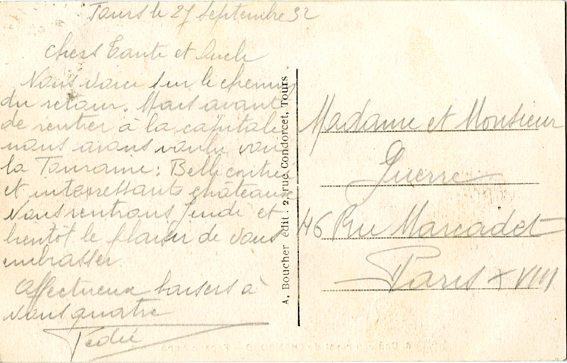 Tours le 27 Septembre 32
Chers Tante et Oncle
Nous voici sur le chemin
du retour. Mais avant
de rentrer à la capitale
nous avons voulu voir
la Touraine : Belle contrée
et intéressants châteaux
Nous rentrons Jeudi et
bientôt le plaisir de vous
embrasser.
Affectueux baisers à
vous quatre
A. Boucher édit : 2, rue Condorcet, Tours.
Madame et Monsieur
Guerre
46 Rue Marcadet
Paris XVIII